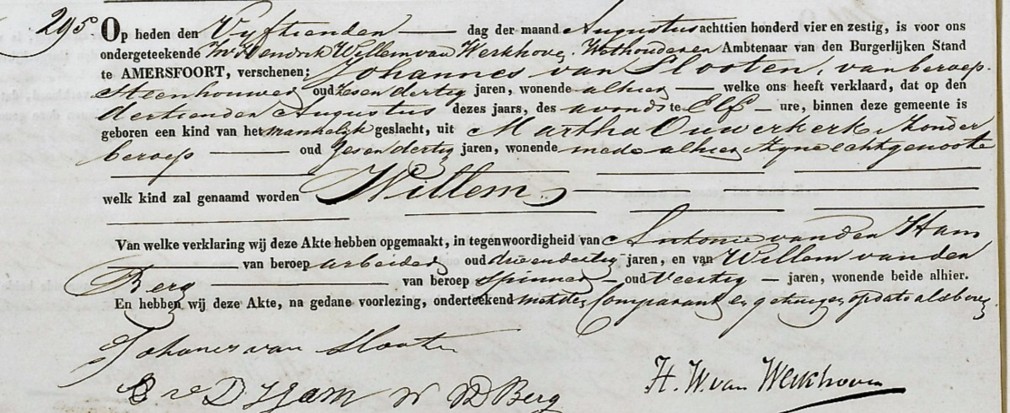 295. Op heden den Vyftienden — dag der maand Augustus achttien honderd vier en zestig, is voor ons
ondergeteekende Hendrik Willem van Werkhoven Wethouder en Ambtenaar van den Burgerlijken Stand
te AMERSFOORT, verschenen; Johannes van Slooten, van beroep
Steenhouwer oud zesendertig jaren, wonende alhier — welke ons heeft verklaard, dat op den
dertienden Augustus dezes jaars, des avonds te Elf — ure, binnen deze gemeente is
geboren een kind van het mannelijk geslacht, uit Martha Ouwerkerk, zonder
beroep — oud zesendertig jaren, wonende mede alhier zyne echtgenoote
welk kind zal genaamd worden Willem
Van welke verklaring wij deze Akte hebben opgemaakt, in tegenwoordigheid van Antonie van den Ham
— van beroep arbeider oud drieendertig jaren, en van Willem van den
Berg — van beroep Spinner — oud Veertig — jaren, wonende beide alhier.
En hebben wij deze Akte, na gedane voorlezing, onderteekend met den Comparant en getuigen op dato als boven
Johanes van Slooten
v D Ham W VD Berg H. W. van Werkhoven